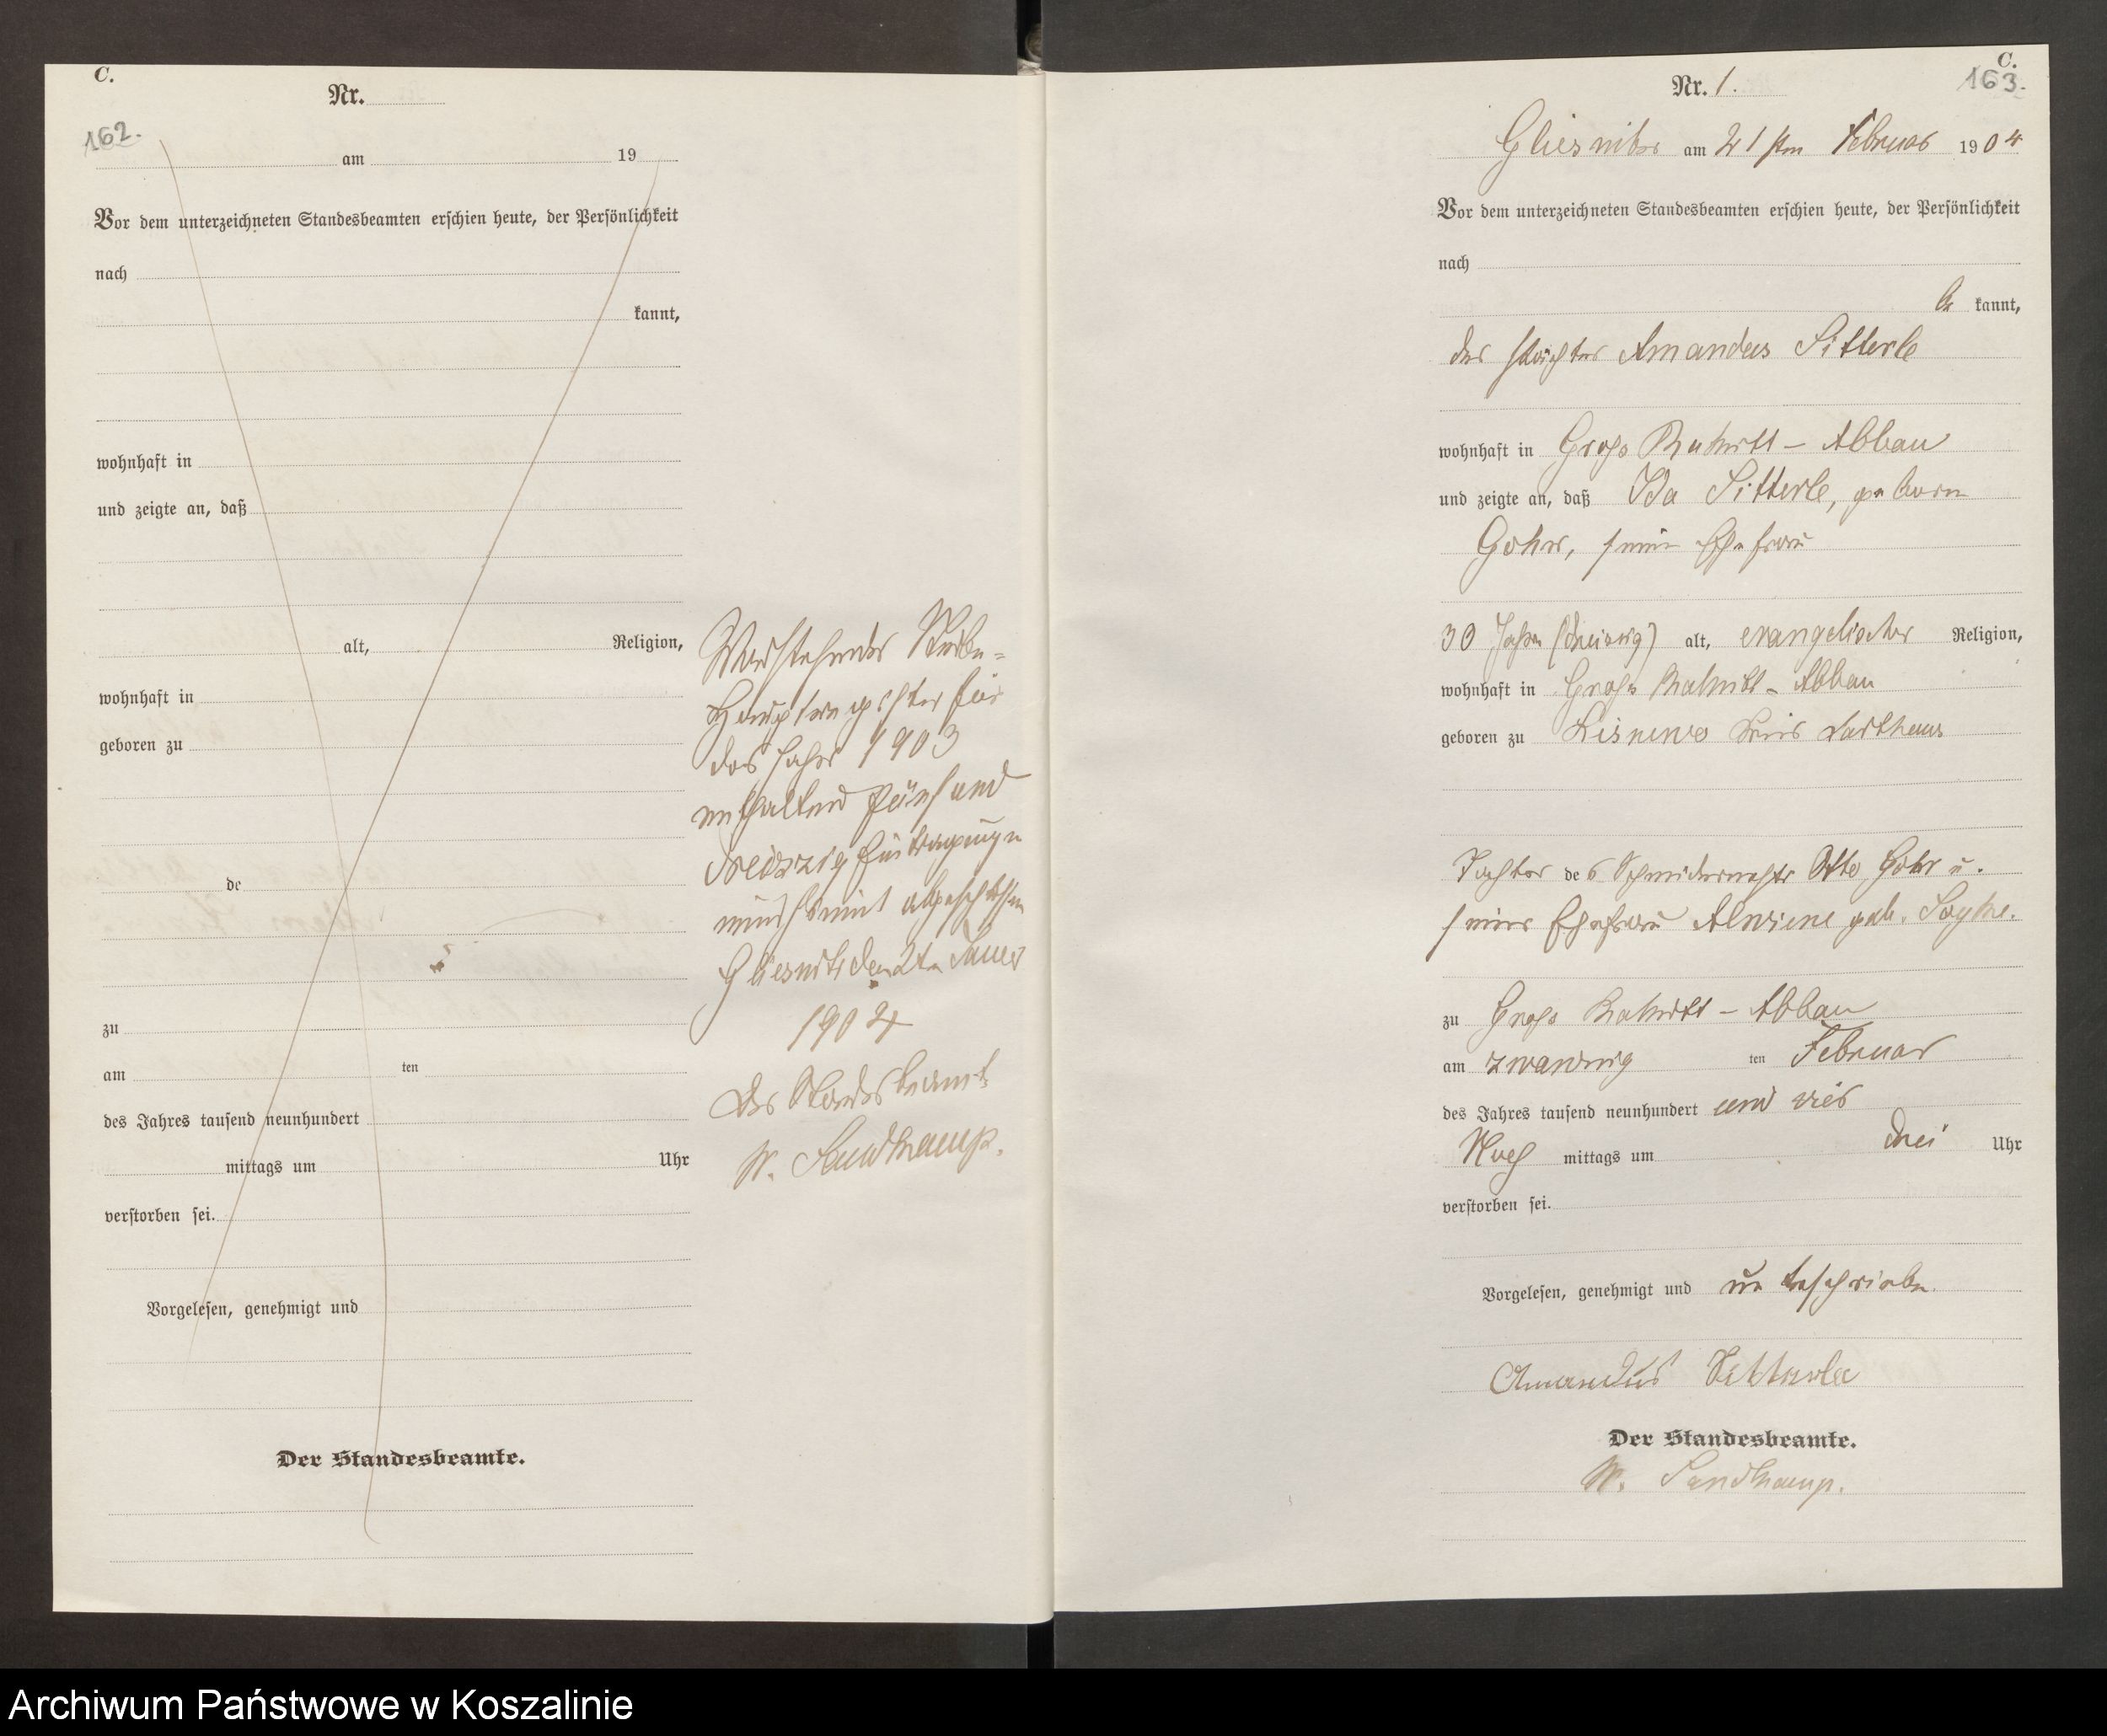 C.
Nr.
162.
am 19
Vor dem unterzeichneten Standesbeamten erschien heute, der Persönlichkeit
nach
kannt,
wohnhaft in
und zeigte an, daß
alt, Religion,
wohnhaft in
geboren zu
de
zu
am ten
des Jahres tausend neunhundert
mittags um Uhr
verstorben sei.
Vorgelesen, genehmigt und
Der Standesbeamte.
Vorstehendes Sterbe-
Hauptregister für
das Jahr 1903
enthaltend fünfund
dreizzig Eintragungen
wird hiermit abgeschlossen
Gliesnitz den 2ten Januar
1904
Der Standesbeamte
W. Sandkamp.
C.
163.
Nr. 1.
Gliesnitz am 21 ten Februar 1904
Vor dem unterzeichneten Standesbeamten erschien heute, der Persönlichkeit
nach
be kannt,
der Pächter Amandus Sitterle
wohnhaft in Gross Rakitt - Abbau
und zeigte an, daß Ida Sitterle, geborn
Gohr, seine Ehefrau
30 Jahre (dreizig) alt, evangelischer Religion,
wohnhaft in Gross Rakitt - Abbau
geboren zu Lisnewo Kreis Karthaus
Tochter des Schmiedemeister Otto Gohr u.
seiner Ehefrau Alwiene geb.
zu Gross Rakitt - Abbau
am zwanzig ten Februar
des Jahres tausend neunhundert und vier
Nach mittags um drei Uhr
verstorben sei.
Vorgelesen, genehmigt und unterschrieben.
Amandus Sitterle
Der Standesbeamte.
W. Sandkamp.
Archiwum Państwowe w Koszalinie